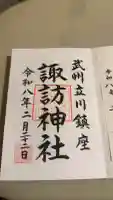 武州立川鎮座
諏訪神社
令和八年二月二十二日